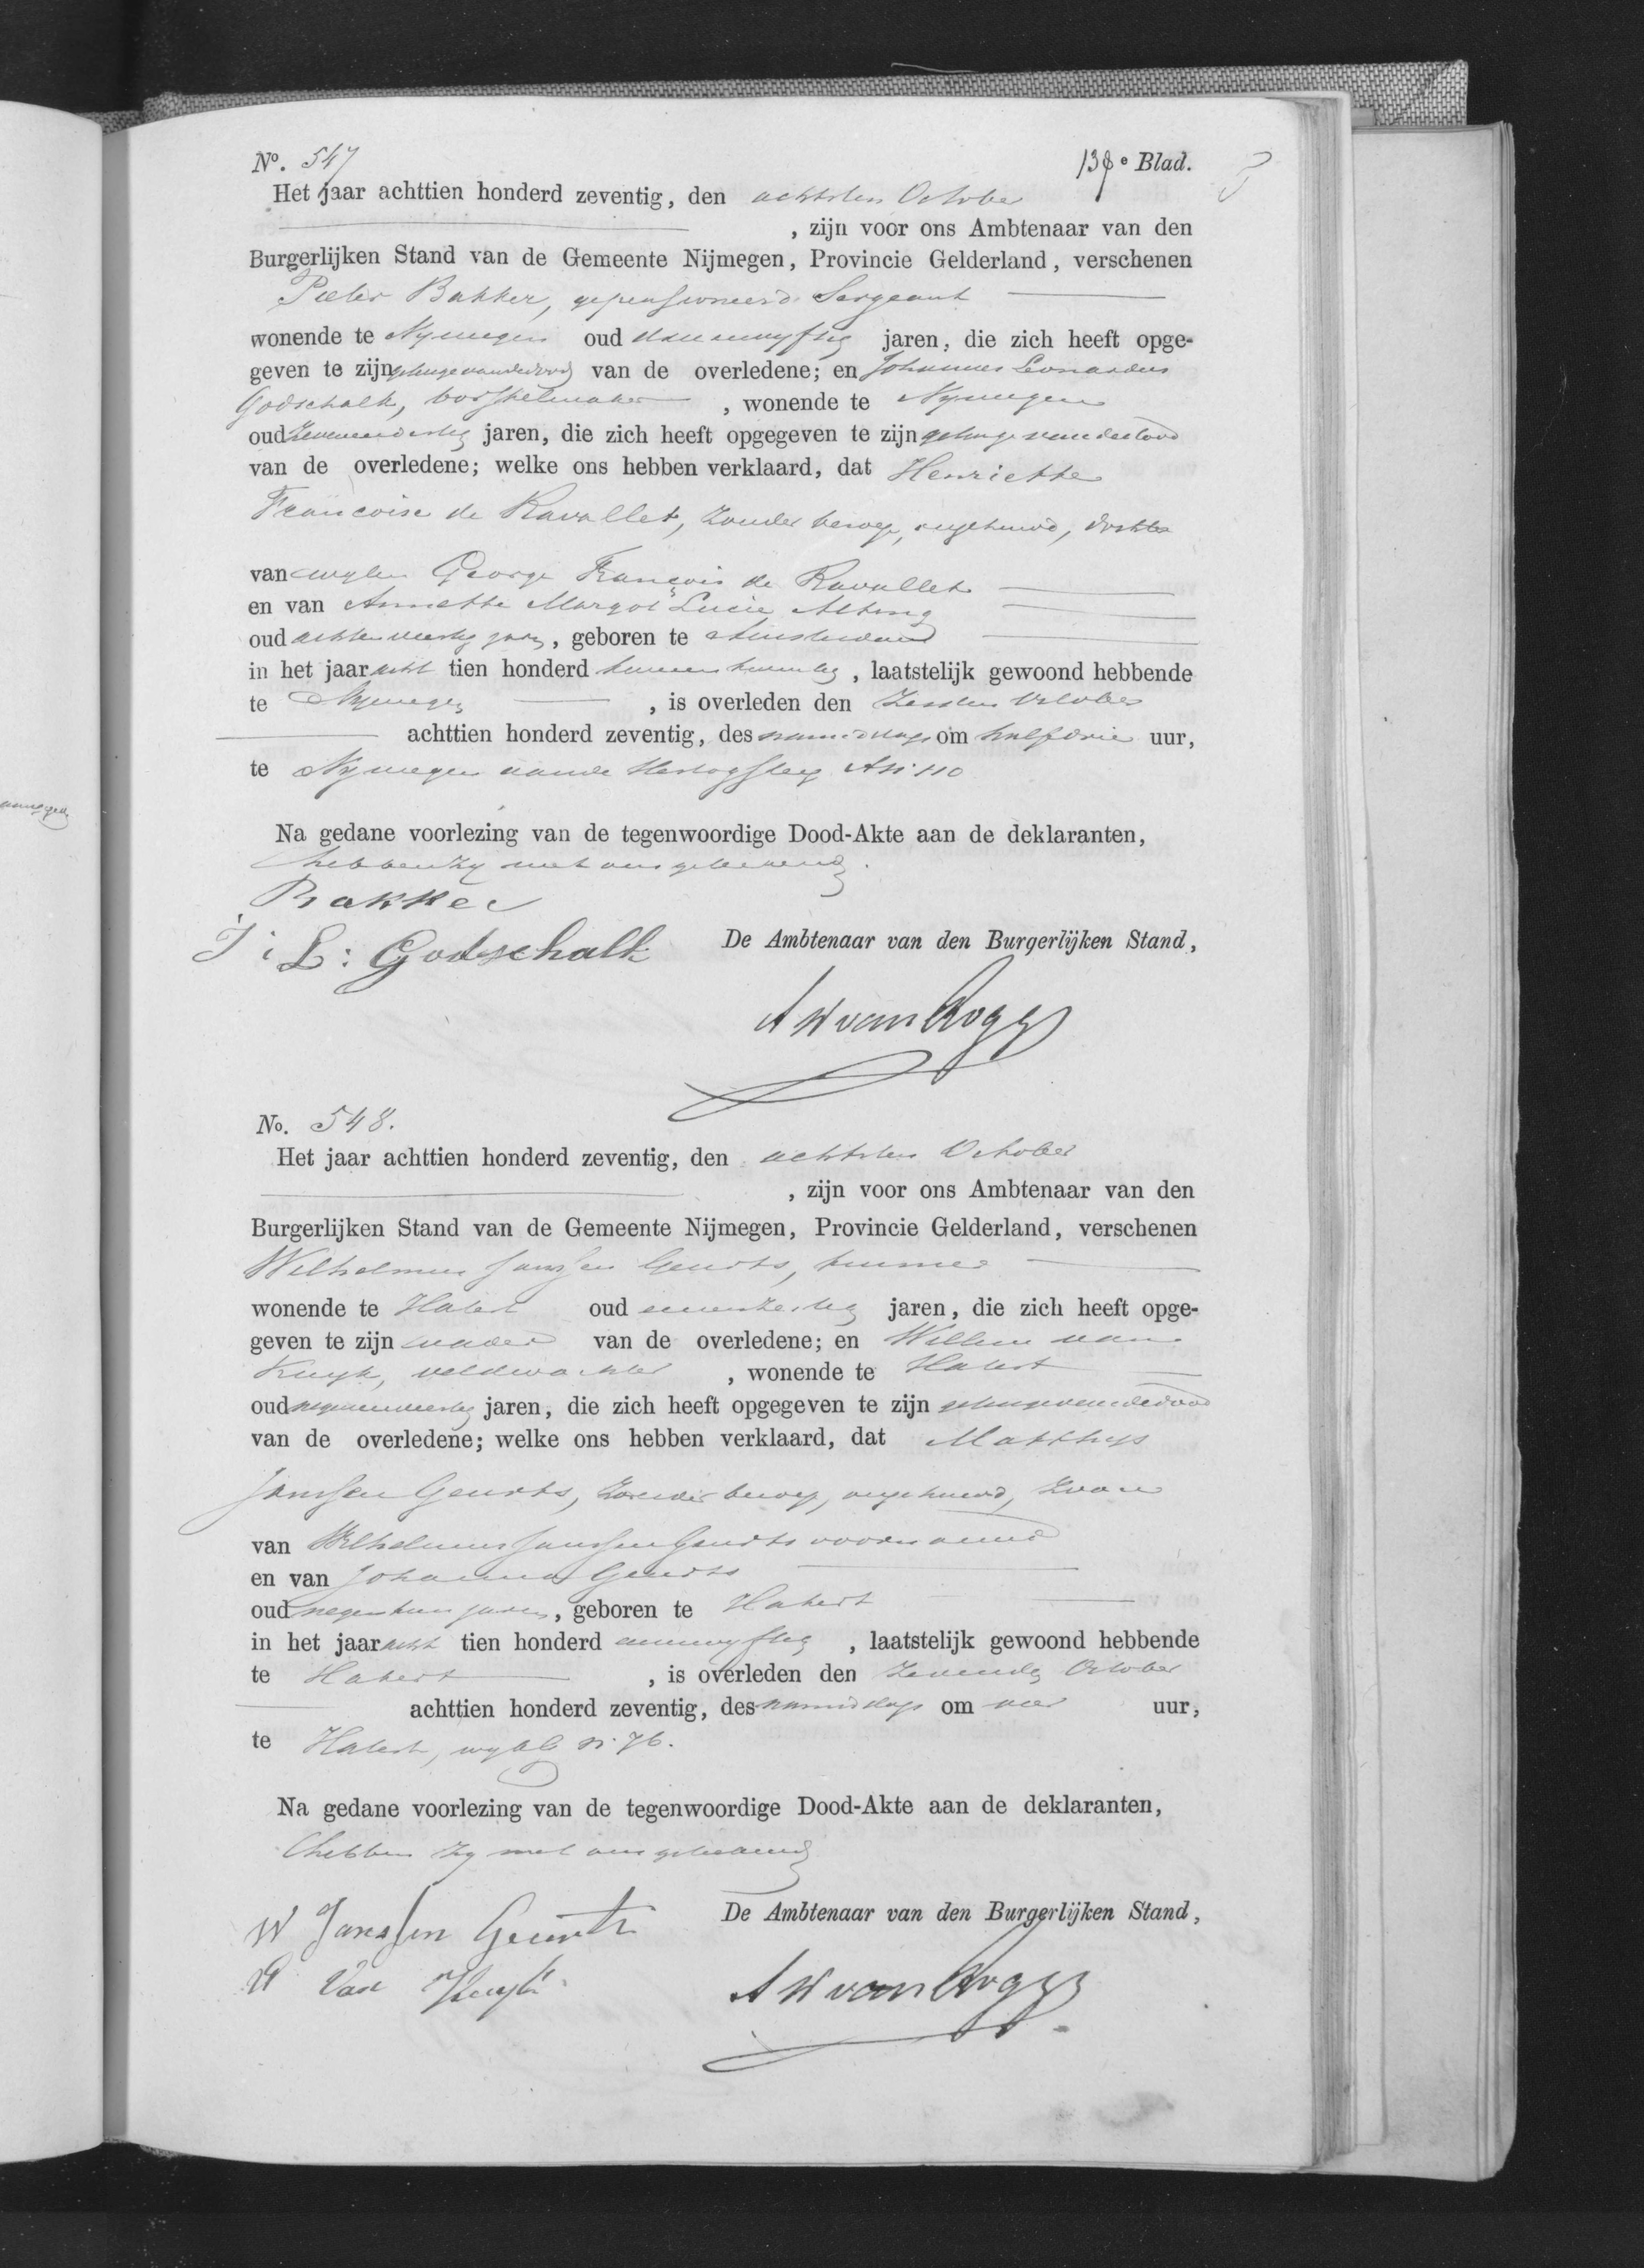 No. 547 138e Blad.
Het jaar achttien honderd zeventig, den achtsten October
, zijn voor ons Ambtenaar van den
Burgerlijken Stand van de Gemeente Nijmegen, Provincie Gelderland, verschenen
Pieter Bakker, gepensioneerd Sergeant
wonende te Nymegen oud jaren, die zich heeft opge-
geven te zijn getuige van den dood van de overledene; en Johannes Leonardus
Godschalk, borstelmaker, wonende te Nymegen
oud zevenendertig jaren, die zich heeft opgegeven te zijn getuige van den dood
van de overledene; welke ons hebben verklaard, dat Henriette
Francoise de Ravallet, zonder beroep, ongehuwd, dochter
van wylen George François de Ravallet
en van Annette Margot Lucie Alting
oud achtenveertig jaren, geboren te Amsterdam
in het jaar acht tien honderd tweeentwintig, laatstelijk gewoond hebbende
te Nymegen, is overleden den zesden October
achttien honderd zeventig, des namiddags om half drie uur,
te Nymegen aan de Hertogsteeg A No 110
Na gedane voorlezing van de tegenwoordige Dood-Akte aan de deklaranten,
hebben zy met ons geteekend.
Bakker
J: L: Godschalk De Ambtenaar van den Burgerlijken Stand,
No. 548.
Het jaar achttien honderd zeventig, den achtsten October
, zijn voor ons Ambtenaar van den
Burgerlijken Stand van de Gemeente Nijmegen, Provincie Gelderland, verschenen
Wilhelmus Janssen Geurts,
wonende te Hatert oud eenenzestig jaren, die zich heeft opge-
geven te zijn vader van de overledene; en Willem van
Kuyk, veldwachter, wonende te Hatert
oud negenenveertig jaren, die zich heeft opgegeven te zijn getuige van den dood
van de overledene; welke ons hebben verklaard, dat Matthys
Janssen Geurts, zonder beroep, ongehuwd, zoon
van Wilhelmus Janssen Geurts voornoemd
en van Johanna Geurts
oud negentien jaren, geboren te Hatert
in het jaar acht tien honderd eenenvyftig, laatstelijk gewoond hebbende
te Hatert, is overleden den zevenden October
achttien honderd zeventig, des namiddags om vier uur,
te Hatert, wyk B No 76.
Na gedane voorlezing van de tegenwoordige Dood-Akte aan de deklaranten,
hebben zy met ons geteekend
W Janssen Geurts De Ambtenaar van den Burgerlijken Stand,
W Van Kuyk